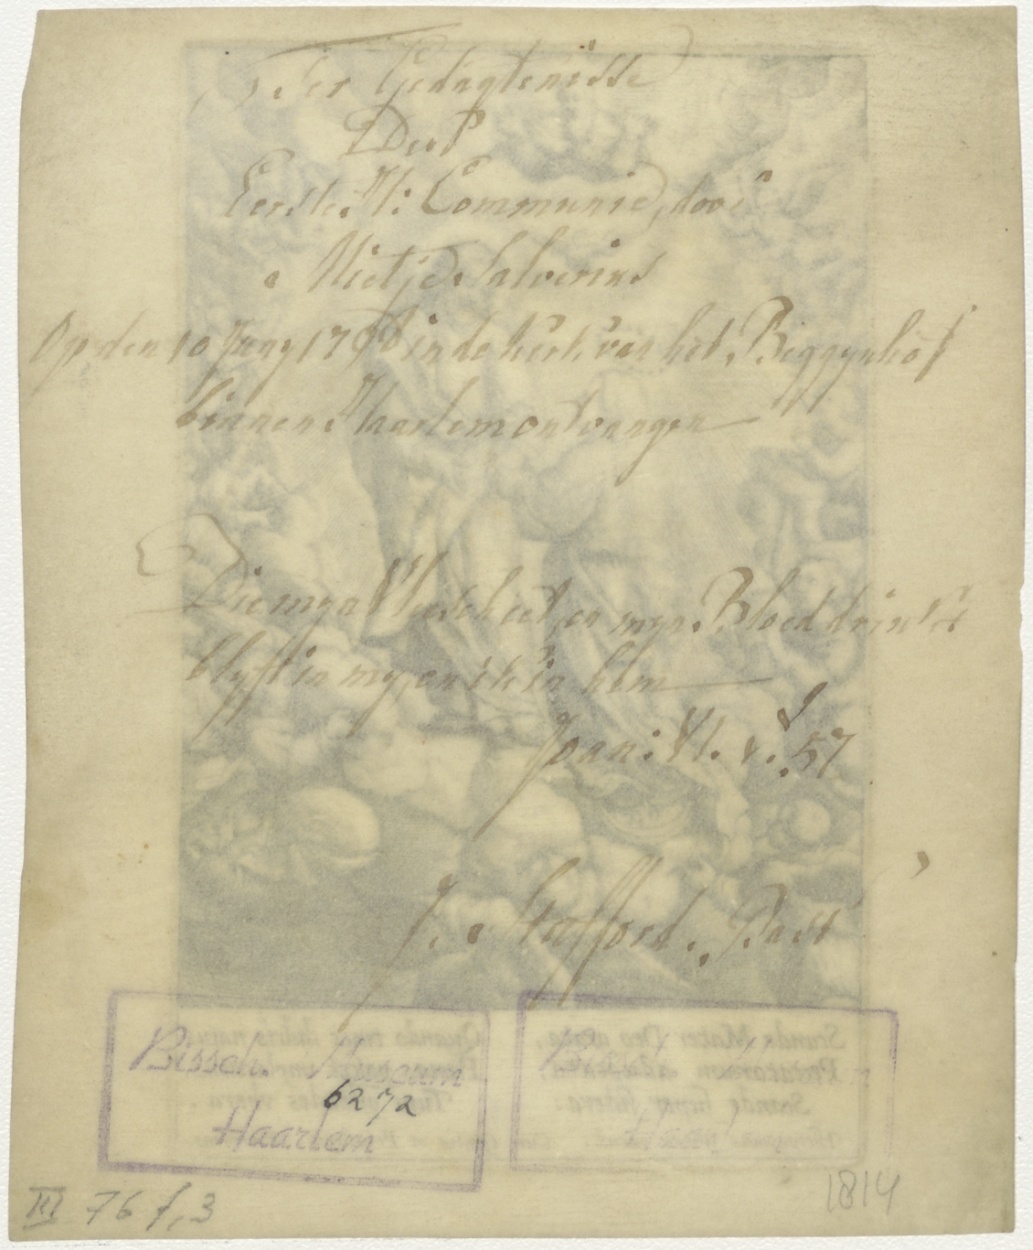 Ter Gedagtenisse
Der
Eerste H: Communie, door
Mietje Salverius
Op den 10 Juny 1798 in de kerk van het Beggynhof
binnen Haarlem ontvangen
Die myn Vleesch eet, en myn Bloed drinkt
blyft in my en ik in hem
Joan: VI. v. 57
J. Stafford. Past
Bissch. Museum
6272
Haarlem
III 76 f, 3
1814